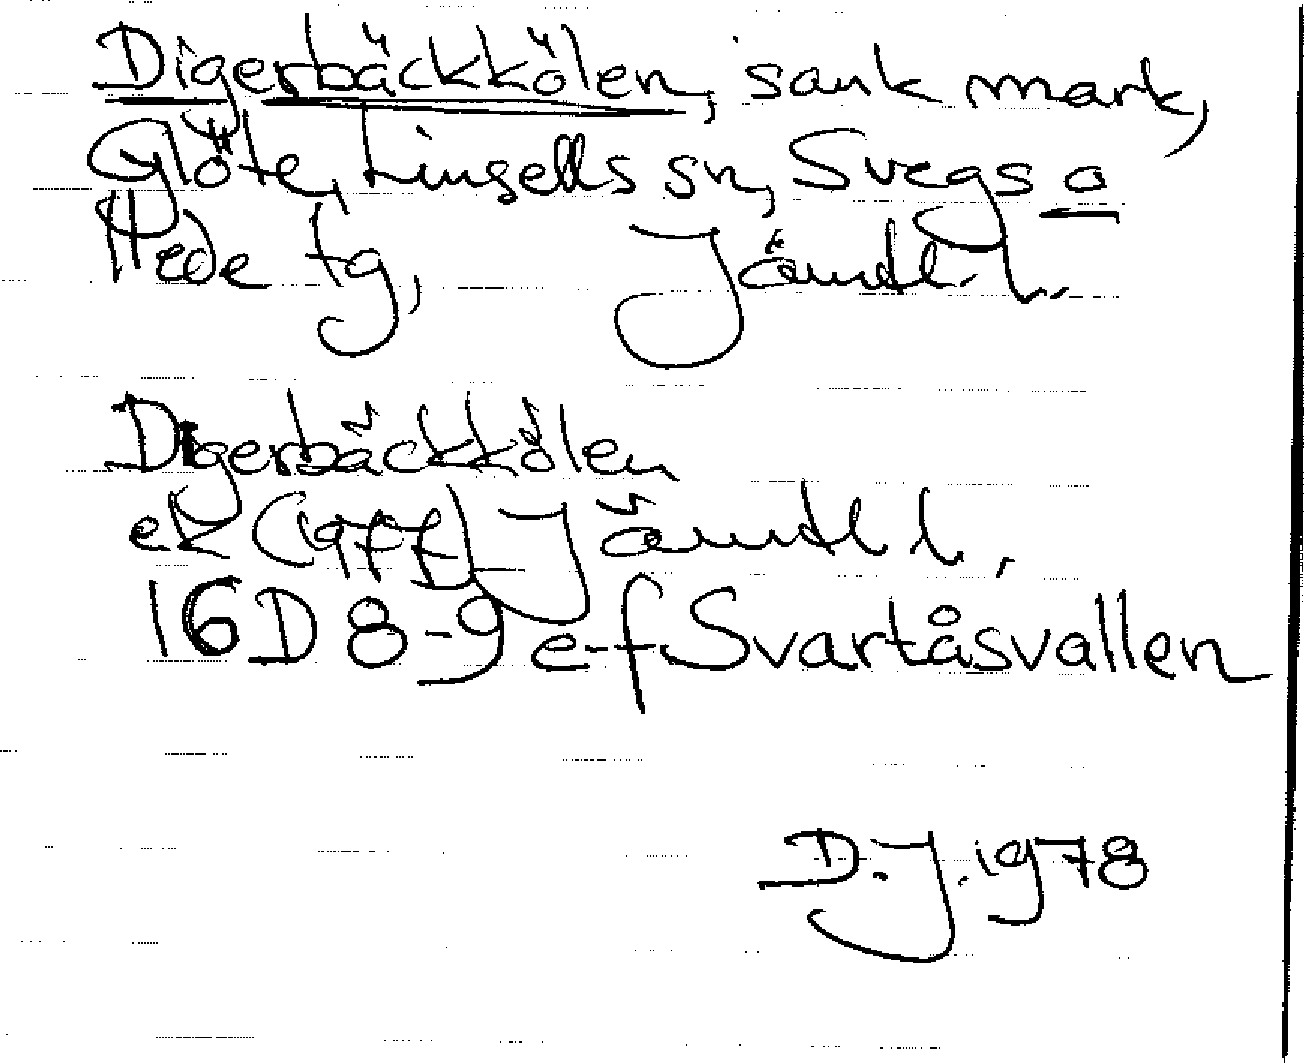 Digerbäckkölen, sank mark,
Glöte, Linsells sn, Svegs o
Hede tg, Jämtl. l.
Digerbäckkölen
ek (1977) Jämtl l,
16D 8-9 e-f Svartåsvallen
D.J. 1978